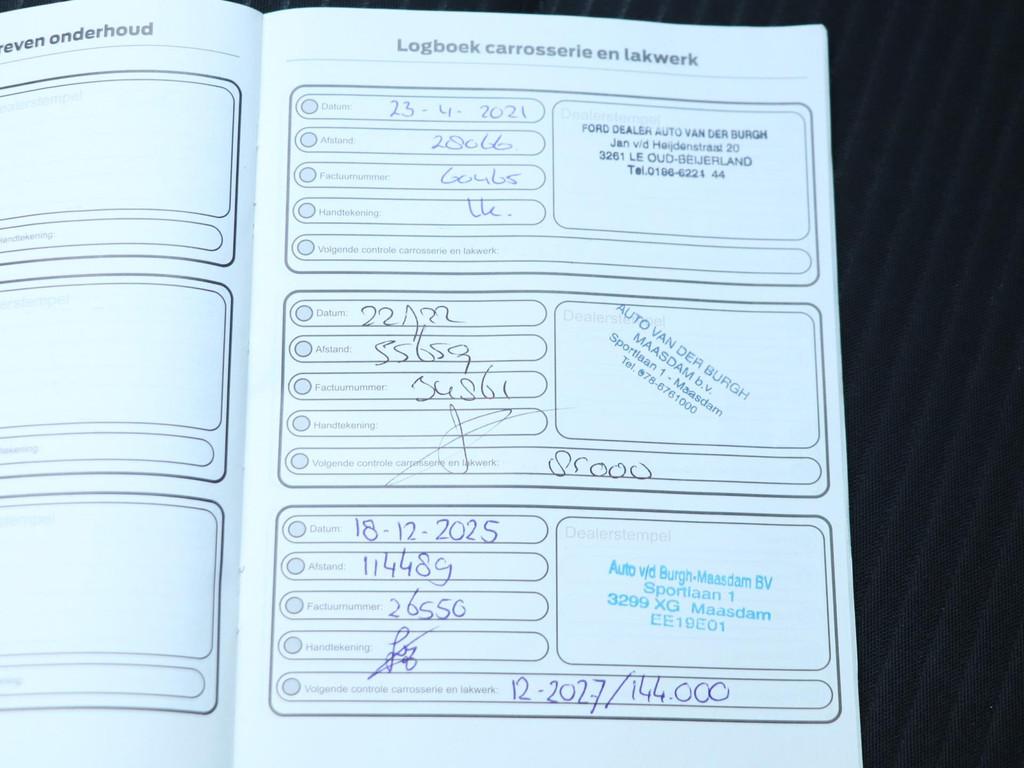 reven onderhoud
Dealerstempel
Handtekening:
Logboek carrosserie en lakwerk
Datum: 23-4-2021
Afstand: 28066
Factuurnummer: 60465
Handtekening:
Volgende controle carrosserie en lakwerk:
Dealerstempel
FORD DEALER AUTO VAN DER BURGH
Jan v/d Heijdenstraat 20
3261 LE OUD-BEIJERLAND
Tel.0186-6221 44
Datum:
Afstand: 55659
Factuurnummer: 34861
Handtekening:
Volgende controle carrosserie en lakwerk: 85000
Dealerstempel
AUTO VAN DER BURGH
MAASDAM b.v.
Sportlaan 1 - Maasdam
Tel. 078-6761000
Datum: 18-12-2025
Afstand: 114489
Factuurnummer: 26550
Handtekening:
Volgende controle carrosserie en lakwerk: 12-2027/144.000
Dealerstempel
Auto v/d Burgh-Maasdam BV
Sportlaan 1
3299 XG Maasdam
EE19E01